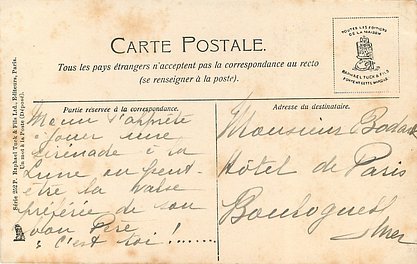 CARTE POSTALE.
Tous les pays étrangers n'acceptent pas la correspondance au recto
(se renseigner à la poste).
TOUTES LES ÉDITIONS
DE LA MAISON
RAPHAEL TUCK & FILS
PORTENT CETTE MARQUE
Série 252 P. Raphael Tuck & Fils Ltd, Editeurs, Paris.
Un mot à la Poste (Déposé).
Partie réservée à la correspondance.
s'apprête
à jouer une
sérénade à la
Lune ou peut-
être la valse
préférée de son
bon Père
à c'est toi !.......
Adresse du destinataire.
Monsieur
Hôtel de Paris
Boulogne s/
mer